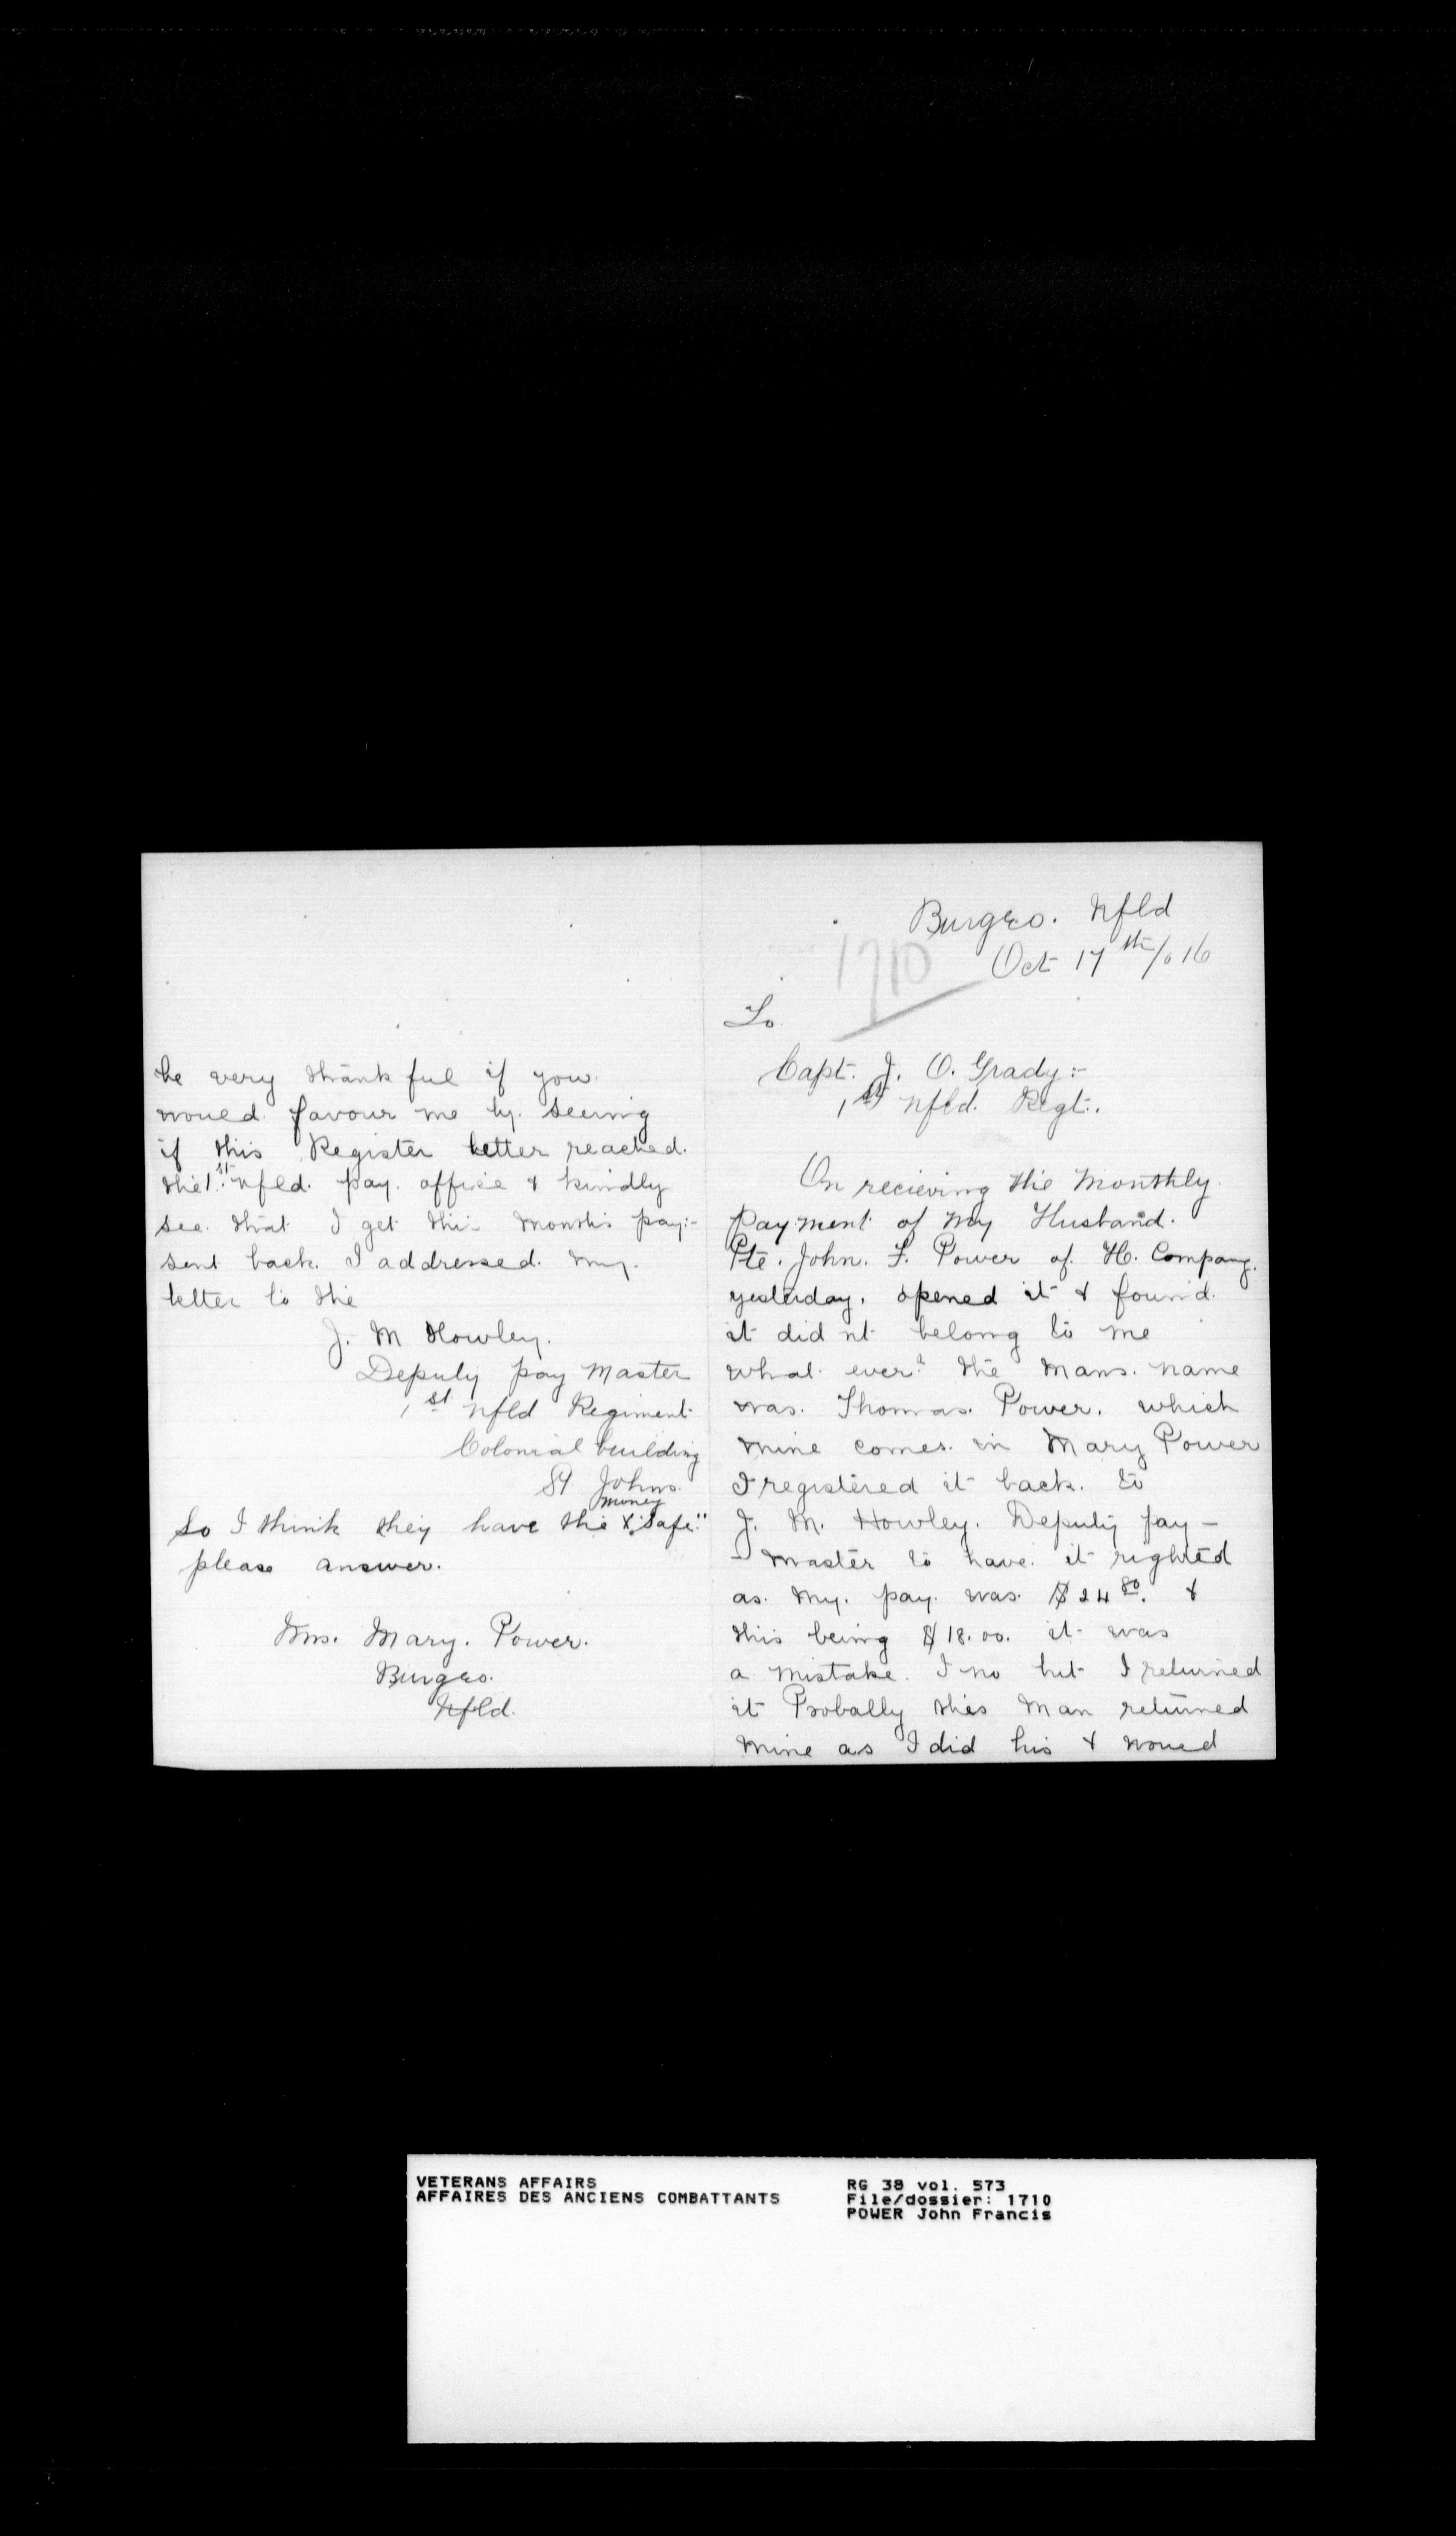 Burgeo. Nfld
Oct 17th/016
1710
To
Capt. J. O. Grady:-
1st Nfld. Regt.
On recieving the Monthly
Payment of my Husband.
Pte. John. F. Power of. H. Company.
yesterday. opened it & found.
it did nt belong to me
what ever? the mans. name
was. Thomas. Power. which
mine comes. in Mary Power
I registered it back. to
J. M. Howley. Deputy pay-
- master to have. it righted
as. my. pay. was. $24 80. &
this being $18.00. it was
a mistake. I no but I returned
it Probally this man returned
mine as I did his & woued
be very thankful if you.
woued favour me by. seeing
if this Register letter reached.
the 1st Nfld. pay. office & kindly
see. that I get this months pay:-
sent back. I addressed. my.
letter to the
J. M Howley.
Deputy pay Master
1st Nfld Regiment
Colonial building
St Johns.
money
So I think they have the x "safe."
please answer.
Mrs. Mary. Power.
Burgeo.
Nfld.
VETERANS AFFAIRS
AFFAIRES DES ANCIENS COMBATTANTS
RG 38 vol. 573
File/dossier: 1710
POWER John Francis